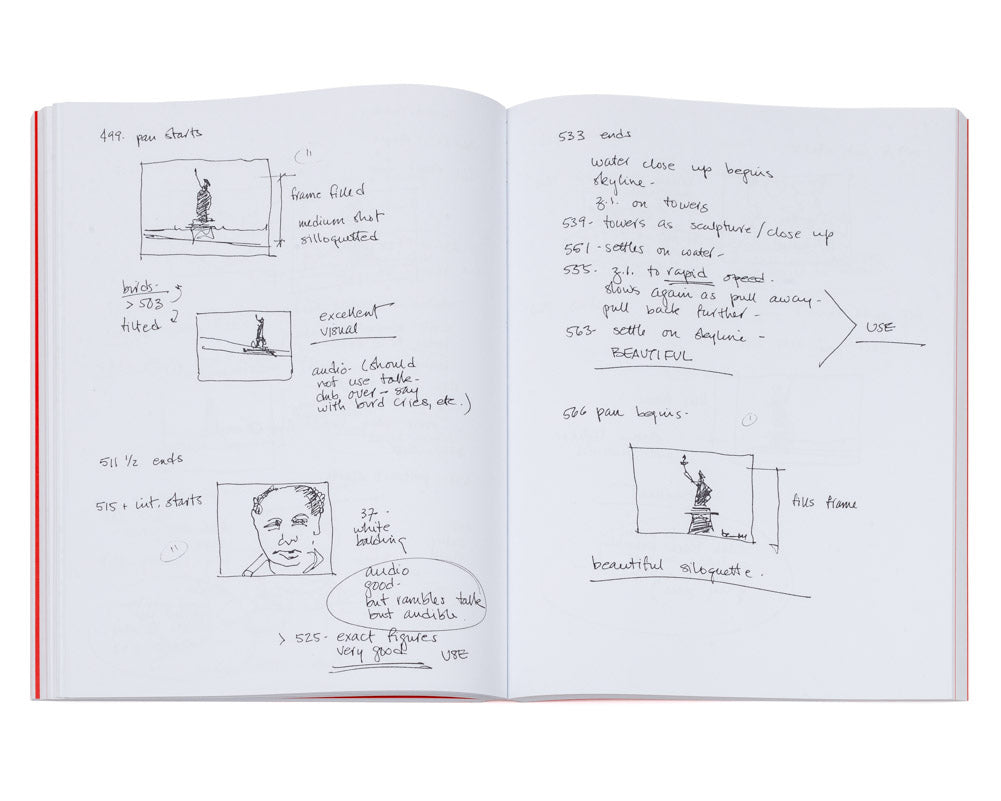 499. pan starts
frame filled
medium shot
silloquetted
birds-
> 503
tilted
excellent
visual
audio- (should
not use talk-
dub over - say
with bird cries, etc.)
511 1/2 ends
515 + int. starts
37-
white
balding
audio
good-
but rambles talk
but audible.
> 525- exact figures
very good USE
533 ends
water close up begins
skyline-
z.i. on towers
539- towers as sculpture/close up
551 - settles on water-
555- z.i. to rapid speed.
slows again as pull away-
pull back further-
563- settle on skyline -
BEAUTIFUL
USE
566 pan begins-
fills frame
beautiful siloquette.